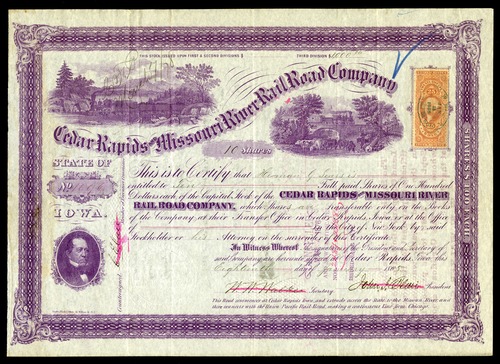 THIS STOCK ISSUED UPON FIRST & SECOND DIVISIONS $
THIRD DIVISION $ 1000
Cedar Rapids and Missouri River Rail Road Company
10 Shares
STATE OF
No
IOWA.
This is to Certify that Herman G.
entitled to Ten Full paid Shares of One Hundred
Dollars each of the Capital Stock of the CEDAR RAPIDS AND MISSOURI RIVER
RAIL ROAD COMPANY, which Shares are transferable only on the Books
of the Company, at their Transfer Office in Cedar Rapids, Iowa or at the Office
of in the City of New York, by said
Stockholder or his Attorney on the surrender of this Certificate.
In Witness Whereof the President and Secretary of
said Company have hereunto signed at Cedar Rapids, Iowa this
Eighteenth day of 186
Secretary
President
This Road commences at Cedar Rapids Iowa, and extends across the State to the Missouri River, and
then connects with the Union Pacific Rail Road, making a continuous Line from Chicago.